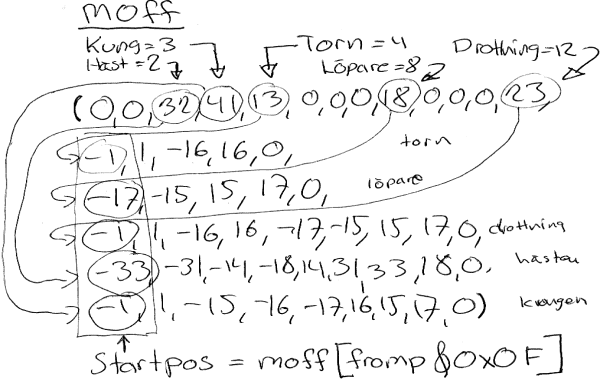 moff
Kung=3 Torn=4 Drottning=12
Häst=2 Löpare=8
(0,0,32,41,13,0,0,0,18,0,0,0,23,
-1,1,-16,16,0, torn
-17,-15,15,17,0, löpare
-1,1,-16,16,-17,-15,15,17,0, drottning
-33,-31,-14,-18,14,31,33,18,0, hästen
-1,1,-15,-16,-17,16,15,17,0) kungen
Startpos = moff[fromp&0x0F]